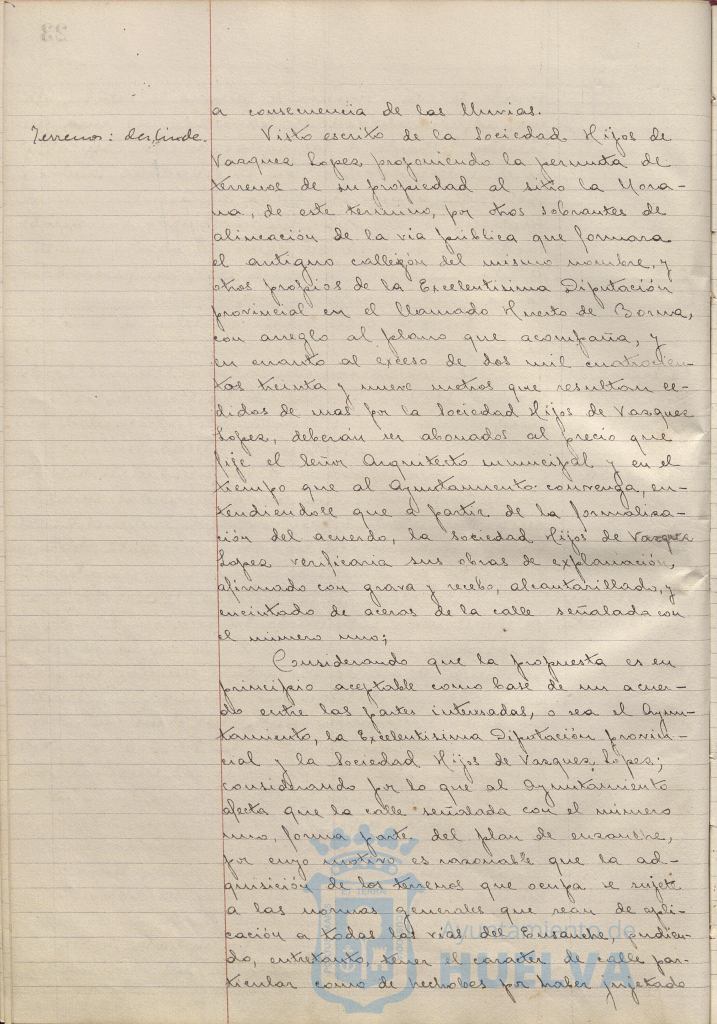 a consecuencia de las lluvias.
Terrenos: deslinde.
Visto escrito de la Sociedad Hijos de
Vazquez Lopez proponiendo la permuta de
terrenos de su propiedad al sitio la Mora-
na, de este termino, por otros sobrantes de
alineación de la via pública que formara
el antiguo callejón del mismo nombre, y
otros propios de la Excelentisima Diputación
provincial en el llamado Huerto de Borna,
con arreglo al plano que acompaña, y
en cuanto al exceso de dos mil cuatrocien-
tos treinta y nueve metros que resultan ce-
didos de mas por la Sociedad Hijos de Vazquez
Lopez, deberán ser abonados al precio que
fije el Señor Arquitecto municipal y en el
tiempo que al Ayuntamiento convenga, en-
tendiendose que a partir de la formaliza-
ción del acuerdo, la Sociedad Hijos de Vazquez
Lopez verificaria sus obras de explanación,
afirmado con grava y recebo, alcantarillado, y
encintado de aceras de la calle señalada con
el número uno;
Considerando que la propuesta es en
principio aceptable como base de un acuer-
do entre las partes interesadas, o sea el Ayun-
tamiento, la Excelentisima Diputación provin-
cial y la Sociedad Hijos de Vazquez Lopez;
considerando por lo que al Ayuntamiento
afecta que la calle señalada con el número
uno, forma parte del plan de ensanche,
por cuyo motivo es razonable que la ad-
quisición de los terrenos que ocupa se sujete
a las normas generales que sean de apli-
cación a todas las vias del Ensanche, pudien-
do, entretanto, tener el caracter de calle par-
ticular como de hecho es por haber sujetado
Ayuntamiento de
HUELVA